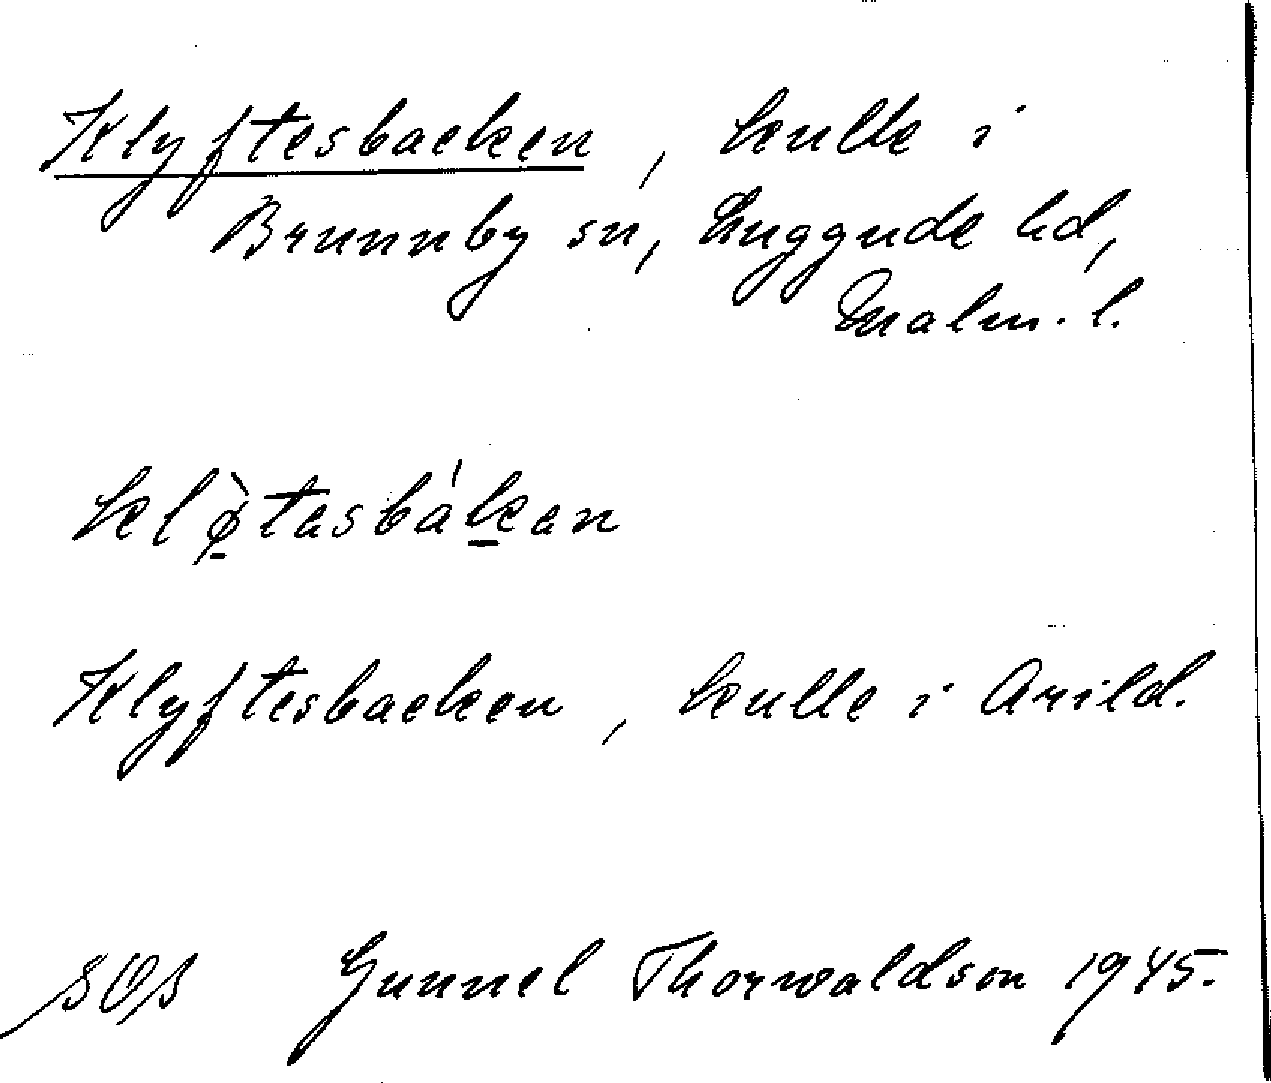 Klyftesbacken, kulle i
Brunnby sn, Luggude hd,
Malm. l.
klø̀tasbákan
Klyftesbacken, kulle i Arild.
SOS Gunnel Thorwaldson 1945.